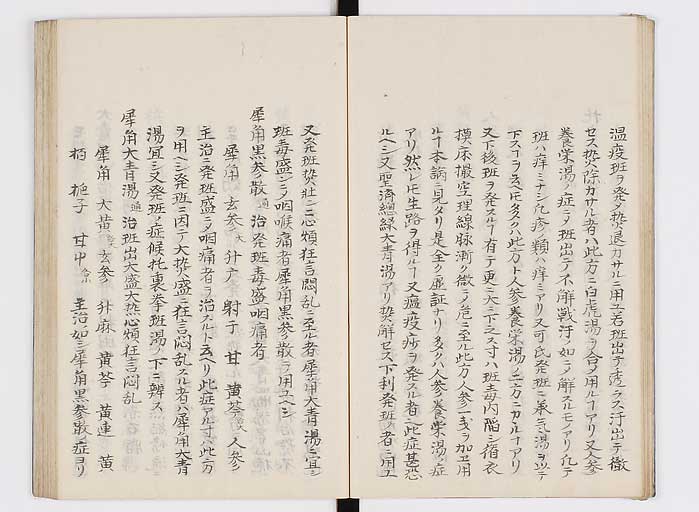 温疫班ヲ発メ熱退カサルニ用ユ若班出テ透ラス汗出テ徹
セス熱除カサル者ハ此方ニ白虎湯ヲ合メ用ルアリ又人参
養栄湯ノ症ニメ班出テ不解戦汗ノ如ニメ解スルモノアリ凡テ
班ハ痒ミナシ凡疹ノ類ハ痒ミアリ又可氏発班ニ承気湯ヲ以テ
下ス
此方ト人参養栄湯ノ二方ニカルアリ
又下後班ヲ発スルアリ
班毒内陥シ循衣
模床撮空理線脉漸ク微ヲ危ニ至ル此方人参一戔ヲ加エ用
ルコ本論ニ見タリ是全ク虚証ナリ多クハ人参養栄湯ノ症
アリ然レ𪜈生路ヲ得ルコ又瘟疫痧ヲ発スル者ニ此症甚恐
ルヘシ又聖済總録大青湯アリ熱解セス下利発班ノ者ニ用ユ
又発班熱壮ニ心煩狂言悶乱ニ至ル者犀角大青湯ニ宜シ
班毒盛シテ咽喉痛者犀角黒参散ヲ用ユヘシ
犀角黒参散 治発班毒盛咽痛者
犀角 玄参 升广 射干 甘 黄芩 人参
主治ニ発班盛ニメ咽痛者ヲ治スルト云ヘリ此症アル寸ハ此方
ヲ用ヘシ発班ニ因テ大熱盛ニ狂言悶乱スル者ハ犀角大青
湯宜シ又発班ノ症候托裏挙班湯ノ下ニ辨ス
犀角大青湯 治班出大盛大熱心煩狂言悶乱
犀角 大黄 玄参 升麻 黄芩 黄連 黄
栢 梔子 甘中 主治如シ犀角黒参散症ヨリ